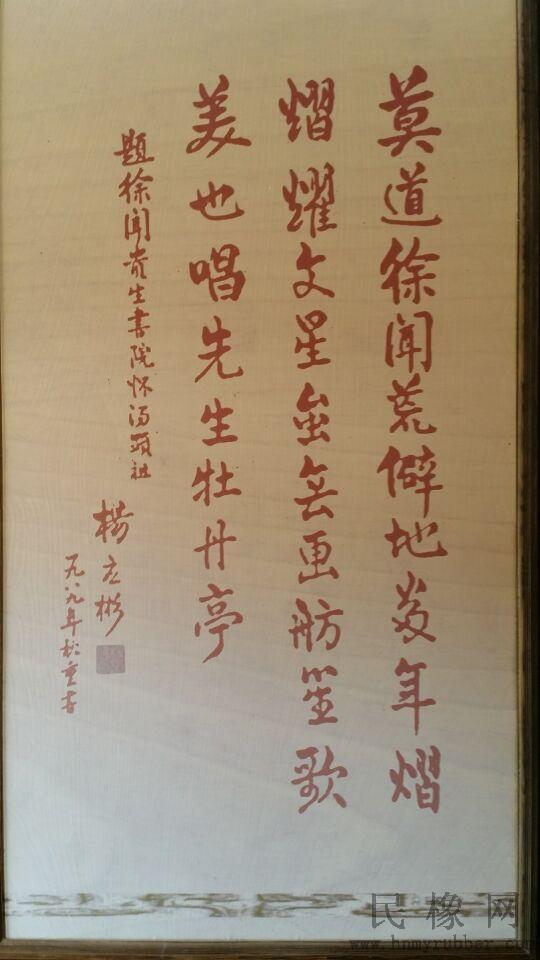 莫道徐闻荒僻地当年熠
熠耀文星虽无画舫笙歌
美也唱先生牡丹亭
题徐闻贵生書院怀汤显祖
杨应彬
一九八九年秋重书
民橡网
www.hnmyrubber.com